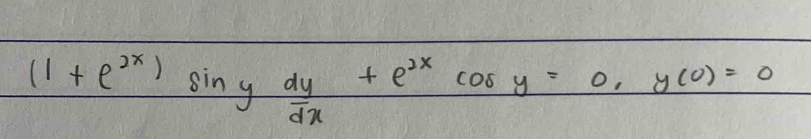 (1 + e^{2x}) sin y \frac{dy}{dx} + e^{2x} cos y = 0, y(0) = 0